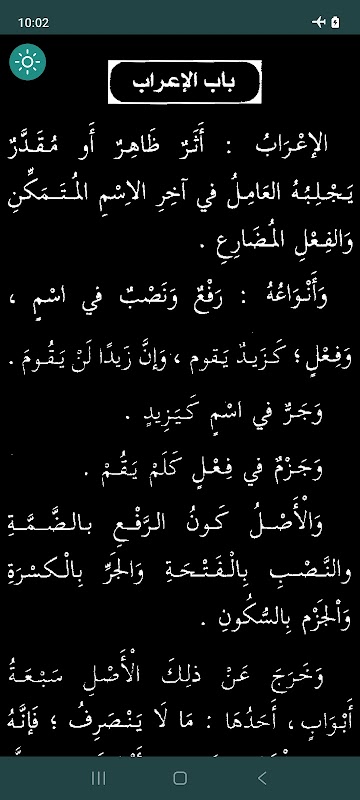 10:02
باب الإعراب
الإعْرَابُ : أَثَرٌ ظَاهِرٌ أَو مُقَدَّرٌ
يَجْلِبُهُ العَامِلُ في آخِرِ الاِسْمِ المُتَمَكِّنِ
وَالفِعْلِ المُضَارِعِ .
وَأَنْوَاعُهُ : رَفْعٌ وَنَصْبٌ في اسْمٍ ،
وَفِعْلٍ ؛ كَزَيدٌ يَقوم ، وَإنَّ زَيدًا لَنْ يَقُومَ .
وَجَرٌّ في اسْمٍ كَبِزَيدٍ .
وَجَزْمٌ في فِعْلٍ كَلَمْ يَقُمْ .
وَالْأَصْلُ كَونُ الرَّفْعِ بالضَّمَّةِ
والنَّصْبِ بِالْفَتْحَةِ وَالجَرِّ بِالْكَسْرَةِ
وَالْجَزْمِ بِالسُّكُونِ .
وَخَرَجَ عَنْ ذلِكَ الْأَصْلِ سَبْعَةُ
أَبْوَابٍ ، أَحَدُهَا : مَا لَا يَنْصَرِفُ ؛ فَإنَّهُ